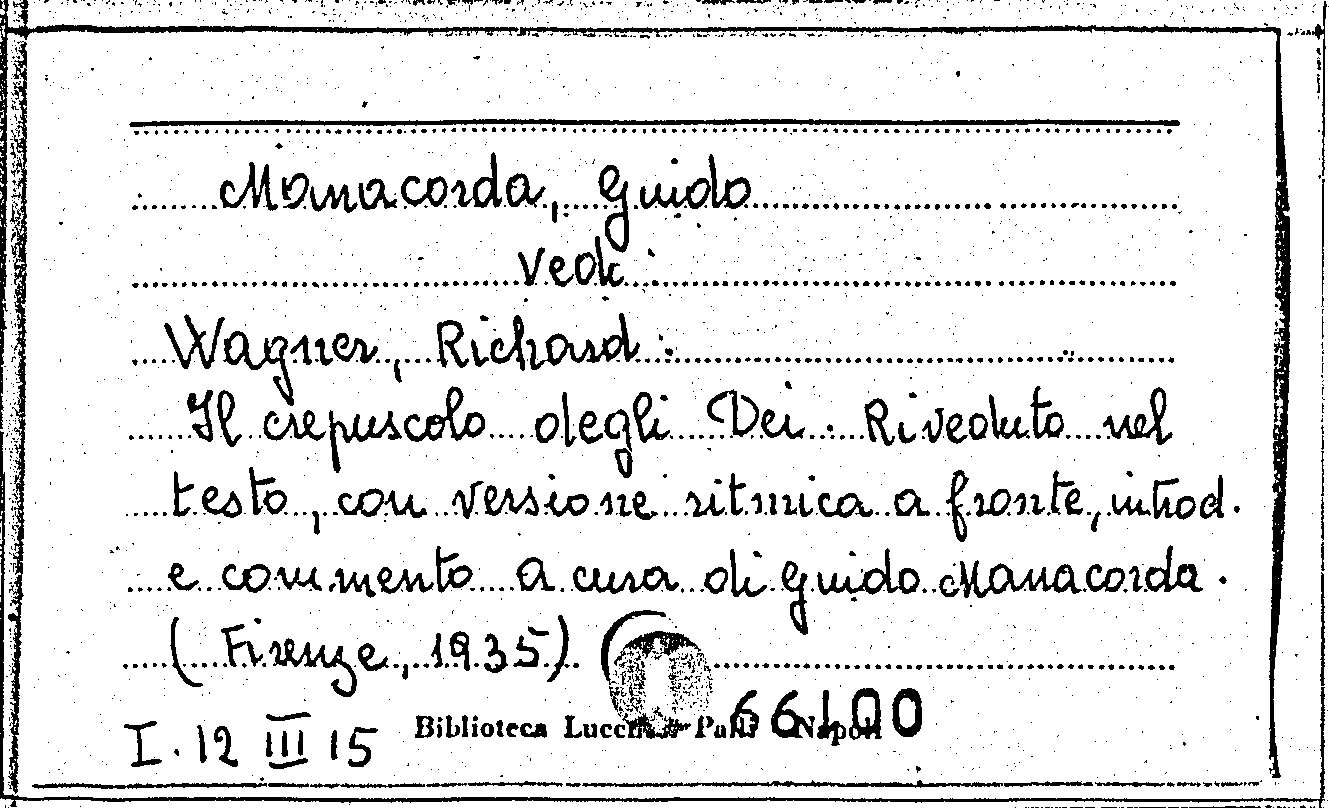 Manacorda, Guido
Vedi:
Wagner, Richard:
Il crepuscolo degli Dei. Riveduto nel
testo, con versione ritmica a fronte, introd.
e commento a cura di Guido Manacorda.
(Firenze, 1935).
I. 12 III 15
Biblioteca Lucchesi Palli Napoli
66100